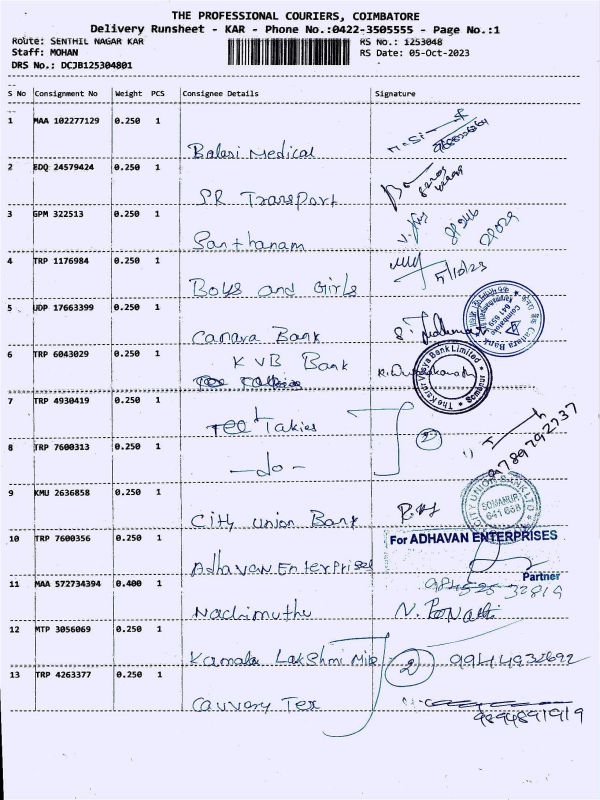 THE PROFESSIONAL COURIERS, COIMBATORE
Delivery Runsheet - KAR - Phone No.:0422-3505555 - Page No.:1
Route: SENTHIL NAGAR KAR RS No.: 1253048
Staff: MOHAN RS Date: 05-Oct-2023
DRS No.: DCJB125304801
S No Consignment No Weight PCS Consignee Details Signature
1 MAA 102277129 0.250 1
Balaji Medical
2 EDQ 24579424 0.250 1
SR Transport
3 GPM 322513 0.250 1
Santhanam
4 TRP 1176984 0.250 1
Boys and Girls 5/10/23
5 UDP 17663399 0.250 1
Canara Bank
6 TRP 6043029 0.250 1
KVB Bank
The Karur Vysya Bank Limited
Somanur
7 TRP 4930419 0.250 1
Takies 2
9789792737
8 TRP 7600313 0.250 1
-do-
9 KMU 2636858 0.250 1
City Union Bank
CITY UNION BANK LTD
SOMANUR
641 668
10 TRP 7600356 0.250 1
For ADHAVAN ENTERPRISES
Adhavan Enterprises
Partner
11 MAA 572734394 0.400 1
32819
Nachimuthu
12 MTP 3056069 0.250 1
Kamala Lakshmi Mill 2 9944932692
13 TRP 4263377 0.250 1
Cauvery Tex
9894891919